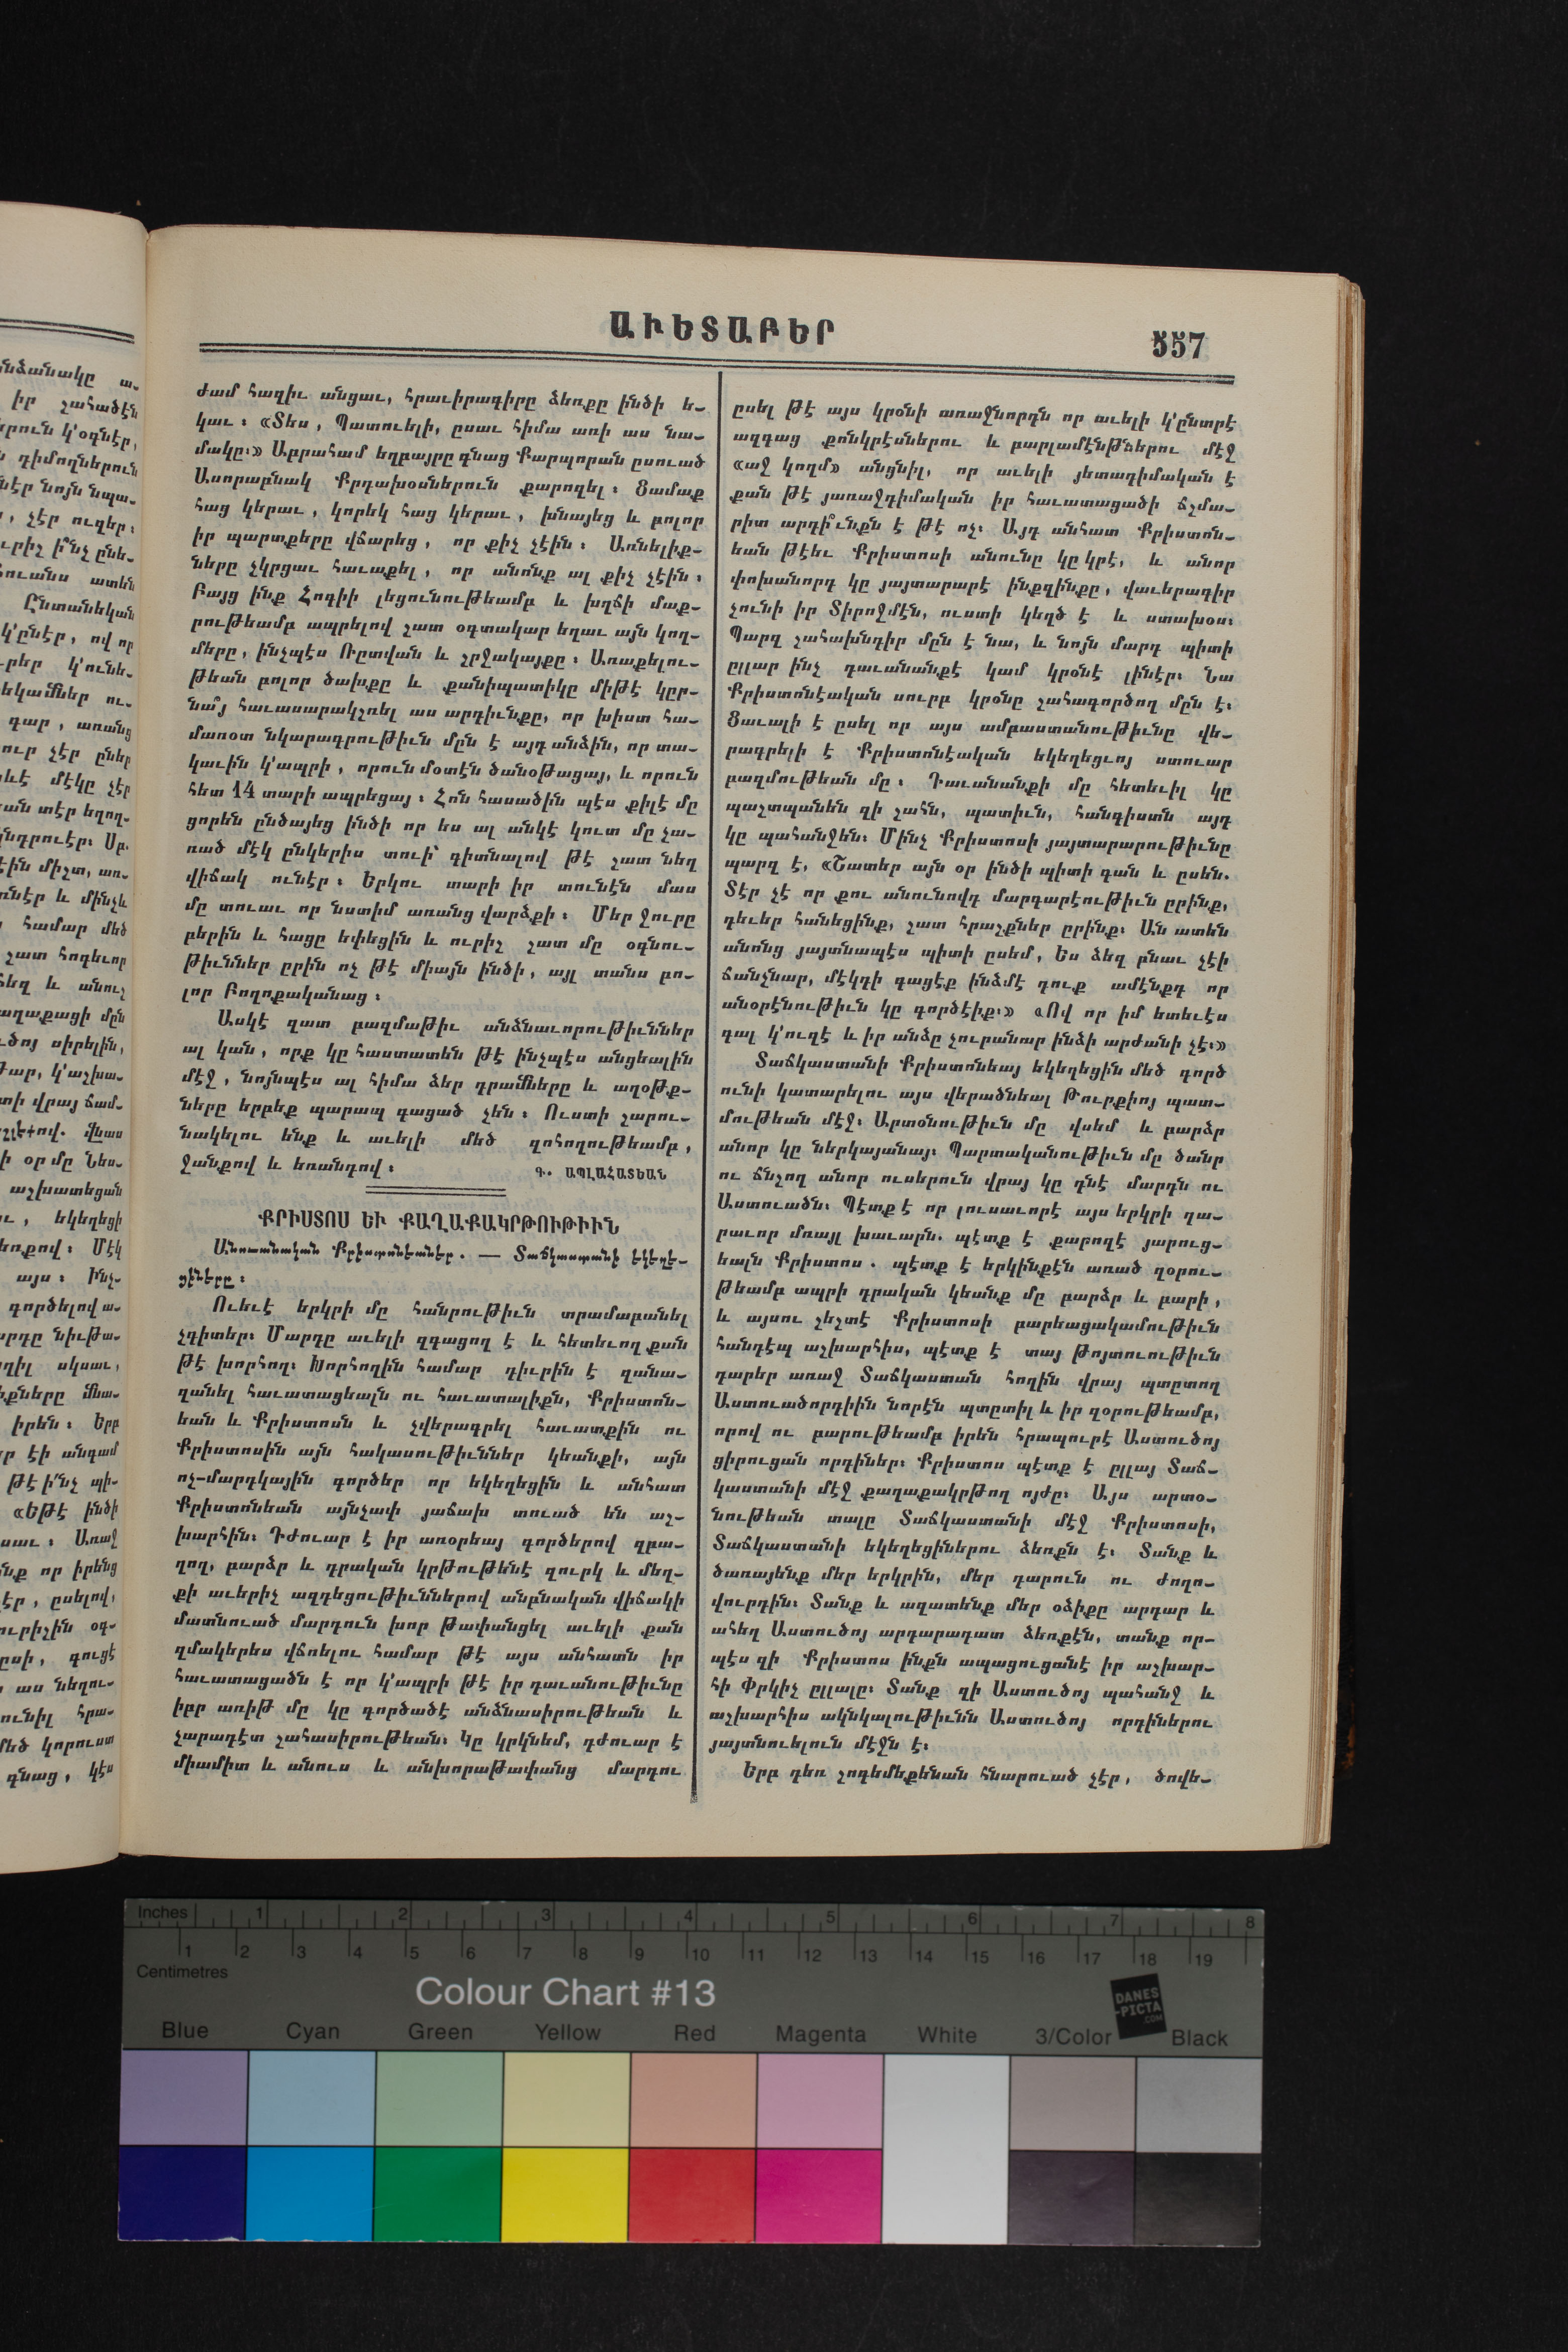 ԱՒԵՏԱԲԵՐ
557
ժամ հազիւ անցաւ, հրաւիրագիրը ձեռքը ինծի ե-
կաւ։ «Տես, Պատուելի, ըսաւ հիմա առի աս նա-
մակը։» Աբրահամ եղբայրը գնաց Քարպորան ըսուած
Ասորաբնակ Քրդախօսներուն քարոզել։ Ցամաք
հաց կերաւ, կորեկ հաց կերաւ, խնայեց և բոլոր
իր պարտքերը վճարեց, որ քիչ չէին։ Առնելիք-
ները չկրցաւ հաւաքել, որ անոնք ալ քիչ չէին։
Բայց ինք Հոգիի լեցունութեամբ և խղճի մաք-
րութեամբ ապրելով շատ օգտակար եղաւ այն կող-
մերը, ինչպէս Ռըտվան և շրջակայքը։ Առաքելու-
թեան բոլոր ծախքը և քանիպատիկը միթէ կըր-
նա՞յ հաւասարակշռել աս արդիւնքը, որ խիստ հա-
մառօտ նկարագրութիւն մըն է այդ անձին, որ տա-
կաւին կ'ապրի, որուն մօտէն ծանօթացայ, և որուն
հետ 14 տարի ապրեցայ։ Հոն հասածին պէս քիլէ մը
ցորեն ընծայեց ինծի որ ես ալ անկէ կուտ մը չա-
ռած մէկ ընկերիս տուի՝ գիտնալով թէ շատ նեղ
վիճակ ունէր։ Երկու տարի իր տունէն մաս
մը տուաւ որ նստիմ առանց վարձքի։ Մեր ջուրը
բերին և հացը եփեցին և ուրիշ շատ մը օգնու-
թիւններ ըրին ոչ թէ միայն ինծի, այլ տանս բո-
լոր Բողոքականաց։
Ասկէ զատ բազմաթիւ անձնաւորութիւններ
ալ կան, որք կը հաստատեն թէ ինչպէս անցեալին
մէջ, նոյնպէս ալ հիմա ձեր դրամները և աղօթք-
ները երբեք պարապ գացած չեն։ Ուստի շարու-
նակելու ենք և աւելի մեծ զոհողութեամբ,
ջանքով և եռանդով։
Գ. ԱՊԼԱՀԱՏԵԱՆ
ՔՐԻՍՏՈՍ ԵՒ ՔԱՂԱՔԱԿՐԹՈՒԹԻՒՆ
Անուանական Քրիստոնեաներ. — Տաճկաստանի եկեղե-
ցիները։
Ուեւէ երկրի մը հանրութիւն տրամաբանել
չգիտեր։ Մարդը աւելի զգացող է և հետեւող քան
թէ խորհող։ Խորհողին համար դիւրին է զանա-
զանել հաւատացեալն ու հաւատալիքն, Քրիստոն-
եան և Քրիստոսն և չվերագրել հաւատքին ու
Քրիստոսին այն հակասութիւններ կեանքի, այն
ոչ-մարդկային գործեր որ եկեղեցին և անհատ
Քրիստոնեան այնչափ յաճախ տուած են աշ-
խարհին։ Դժուար է իր առօրեայ գործերով զբա-
ղող, բարձր և դրական կրթութենէ զուրկ և մեղ-
քի աւերիչ ազդեցութիւններով անբնական վիճակի
մատնուած մարդուն խոր թափանցել աւելի քան
զմակերես վճռելու համար թէ այս անհատն իր
հաւատացածն է որ կ'ապրի թէ իր դաւանութիւնը
իբր առիթ մը կը գործածէ անձնասիրութեան և
չարադէտ շահասիրութեան։ Կը կրկնեմ, դժուար է
միամիտ և անուս և անխորաթափանց մարդու
ըսել թէ այս կրօնի առաջնորդն որ աւելի կ'ընտրէ
ազգաց քոնկրէսներու և բարլամէնթներու մէջ
«աջ կողմ» անցնիլ, որ աւելի յետադիմական է
քան թէ յառաջդիմական իր հաւատացածի ճշմա-
րիտ արդի՞ւնքն է թէ ոչ։ Այդ անհատ Քրիստոն-
եան թէեւ Քրիստոսի անունը կը կրէ, և անոր
փոխանորդ կը յայտարարէ ինքզինքը, վաւերագիր
չունի իր Տիրոջմէն, ուստի կեղծ է և ստախօս։
Պարզ շահախնդիր մըն է նա, և նոյն մարդ պիտի
ըլլար ինչ դաւանանքէ կամ կրօնէ լինէր։ Նա
Քրիստոնէական սուրբ կրօնը շահագործող մըն է։
Ցաւալի է ըսել որ այս ամբաստանութիւնը վե-
րագրելի է Քրիստոնէական եկեղեցւոյ ստուար
բազմութեան մը։ Դաւանանքի մը հետեւիլ կը
պաշտպանեն զի շահն, պատիւն, հանգիստն այդ
կը պահանջեն։ Մինչ Քրիստոսի յայտարարութիւնը
պարզ է, «Շատեր այն օր ինծի պիտի գան և ըսեն.
Տէր չէ որ քու անունովդ մարգարէութիւն ըրինք,
դեւեր հանեցինք, շատ հրաշքներ ըրինք։ Ան ատեն
անոնց յայտնապէս պիտի ըսեմ, Ես ձեզ բնաւ չէի
ճանչնար, մէկդի գացէք ինձմէ դուք ամէնքդ որ
անօրէնութիւն կը գործէիք։» «Ով որ իմ ետեւէս
գալ կ'ուզէ և իր անձը չուրանար ինձի արժանի չէ։»
Տաճկաստանի Քրիստոնեայ եկեղեցին մեծ գործ
ունի կատարելու այս վերածնեալ Թուրքիոյ պատ-
մութեան մէջ։ Արտօնութիւն մը վսեմ և բարձր
անոր կը ներկայանայ։ Պարտականութիւն մը ծանր
ու ճնշող անոր ուսերուն վրայ կը դնէ մարդն ու
Աստուածն։ Պէտք է որ լուսաւորէ այս երկրի դա-
րաւոր մռայլ խաւարն. պէտք է քարոզէ յարուց-
եալն Քրիստոս. պէտք է երկինքէն առած զօրու-
թեամբ ապրի դրական կեանք մը բարձր և բարի,
և այսու շեշտէ Քրիստոսի բարեացակամութիւն
հանդէպ աշխարհիս, պէտք է տայ թոյլտուութիւն
դարեր առաջ Տաճկաստան հողին վրայ պտըտող
Աստուածորդիին նորէն պտըտիլ և իր զօրութեամբ,
որով ու բարութեամբ իրեն հրապուրէ Աստուծոյ
ցիրուցան որդիներ։ Քրիստոս պէտք է ըլլայ Տաճ-
կաստանի մէջ քաղաքակրթող ոյժը։ Այս արտօ-
նութեան տալը Տաճկաստանի մէջ Քրիստոսի,
Տաճկաստանի եկեղեցիներու ձեռքն է։ Տանք և
ծառայենք մեր երկրին, մեր դարուն ու ժողո-
վուրդին։ Տանք և ազատենք մեր օձիքը արդար և
ահեղ Աստուծոյ արդարադատ ձեռքէն, տանք որ-
պէս զի Քրիստոս ինքն ապացուցանէ իր աշխար-
հի Փրկիչ ըլլալը։ Տանք զի Աստուծոյ պահանջ և
աշխարհիս ակնկալութիւնն Աստուծոյ որդիներու
յայտնուելուն մէջն է։
Երբ դեռ շոգեմեքենան հնարուած չէր, ծովե-
Inches 1 2 3 4 5 6 7 8
1 2 3 4 5 6 7 8 9 10 11 12 13 14 15 16 17 18 19
Centimetres
Colour Chart #13
DANES
-PICTA
.COM
Blue Cyan Green Yellow Red Magenta White 3/Color Black